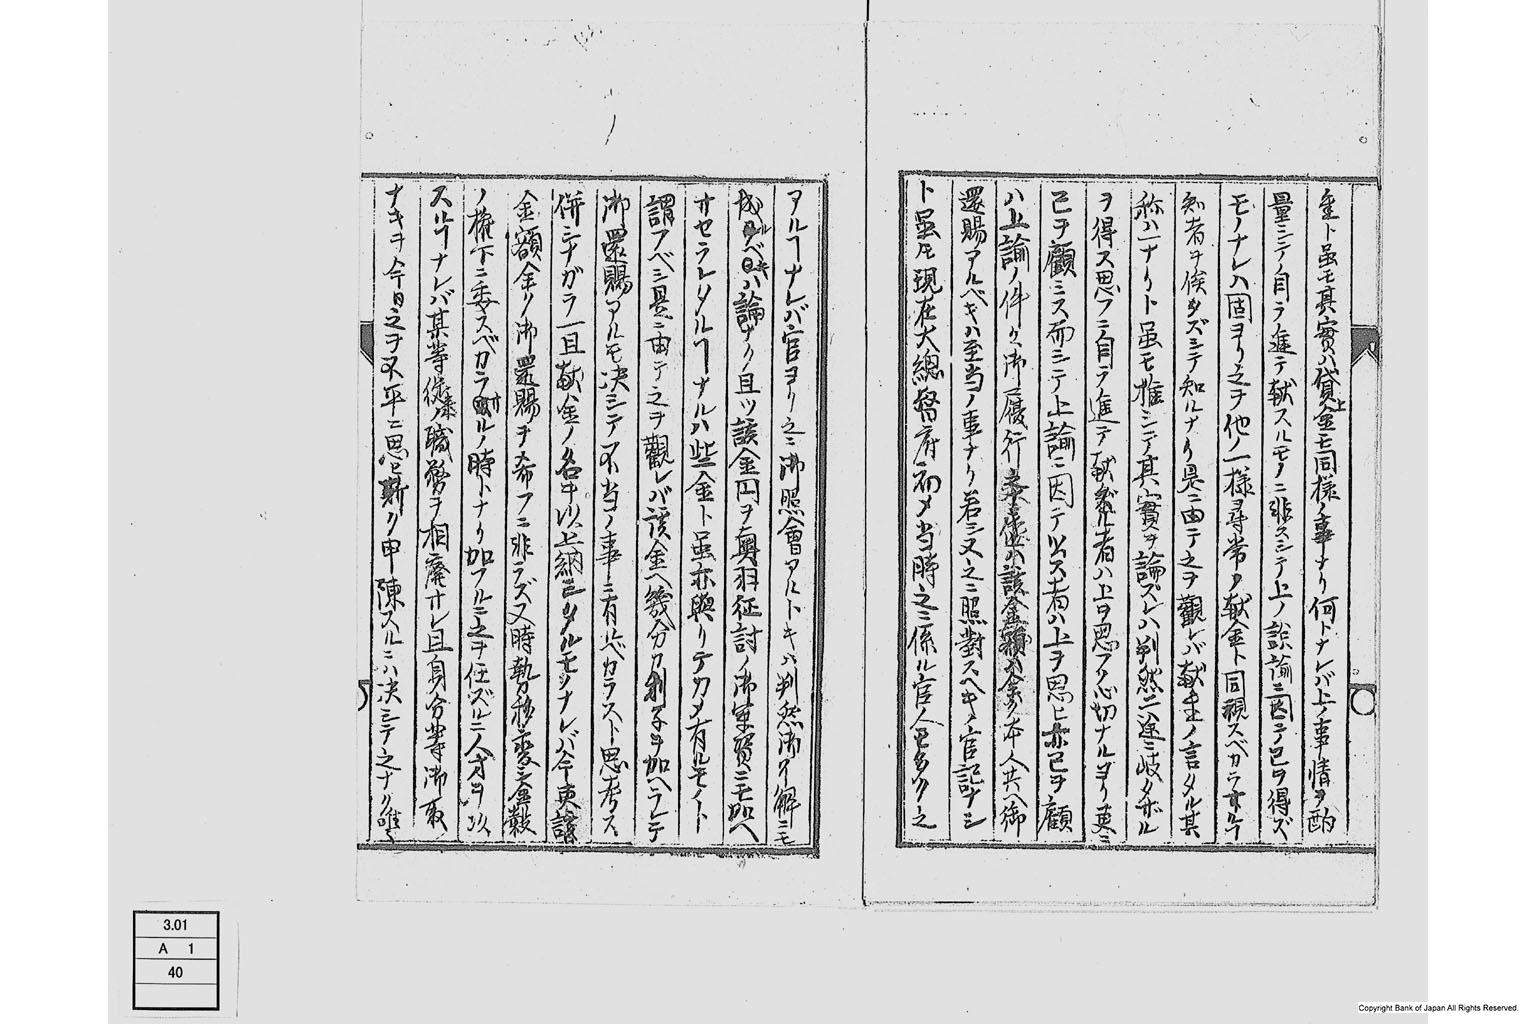 雖モ其實ハ貸上金モ同樣ノ事ナリ何トナレバ上ノ事情ヲ酌
量シテ自ラ進テ献スルモノニ非スシテ上ノ説諭ニ因テ已ヲ得ズ
モノナレハ固ヨリ之ヲ他ノ一樣尋常ノ献金ト同視スベカラサル
知者ヲ俟タズシテ知ルナリ是ニ由テ之ヲ觀レバ献金ノ言タル其
称ハ一ナリト雖モ推シテ其實ヲ論ズレハ判然二途ニ岐タザル
ヲ得ス思フニ自ラ進テ献ズル者ハ上ヲ思フノ心切ナルヨリ更ニ
己ヲ顧ミス而シテ上諭ニ因テ出ス者ハ上ヲ思ヒ亦己ヲ顧
ハ上諭ノ件々御履行 該金額ハ金ク本人共ヘ御
還賜アルベキハ至当ノ事ナリ若シ又之ニ照對スヘキノ官記ナシ
ト雖モ現在大總督府初メ当時之ニ係ル官人モ多ク之
アルヿナレバ官ヨリ之ニ御照會アルトキハ判然御了解ニモ
成ルベキハ論ナク且ツ該金円ヲ奥羽征討ノ御軍資ニモ加ヘ
サセラレタルヿナルハ些金ト雖亦與リテ力メ有ルモノト
謂フベシ是ニ由テ之ヲ觀レバ該金ヘ幾分カ利子ヲ加ヘラレテ
御還賜アルモ決シテ不当ノ事ニ有ルベカラスト思考ス
併シナガラ一旦献金ノ名ヲ以上納シタルモノナレバ今更該
金額金ク御還賜ヲ希フニ非ラズ又時勢移變シ金穀
ノ權下ニ委スベカラサルノ時トナリ加フルニ之ヲ任ズルニ人才ヲ以
スルヿナレバ某等従来ノ職務ヲ相廢サレ且身分等御取
ナキヲ今日之ヲ不平ニ思ヒ斯ク申陳スルニハ決シテ之ナク唯
3.01
A 1
40
Copyright Bank of Japan All Rights Reserved.